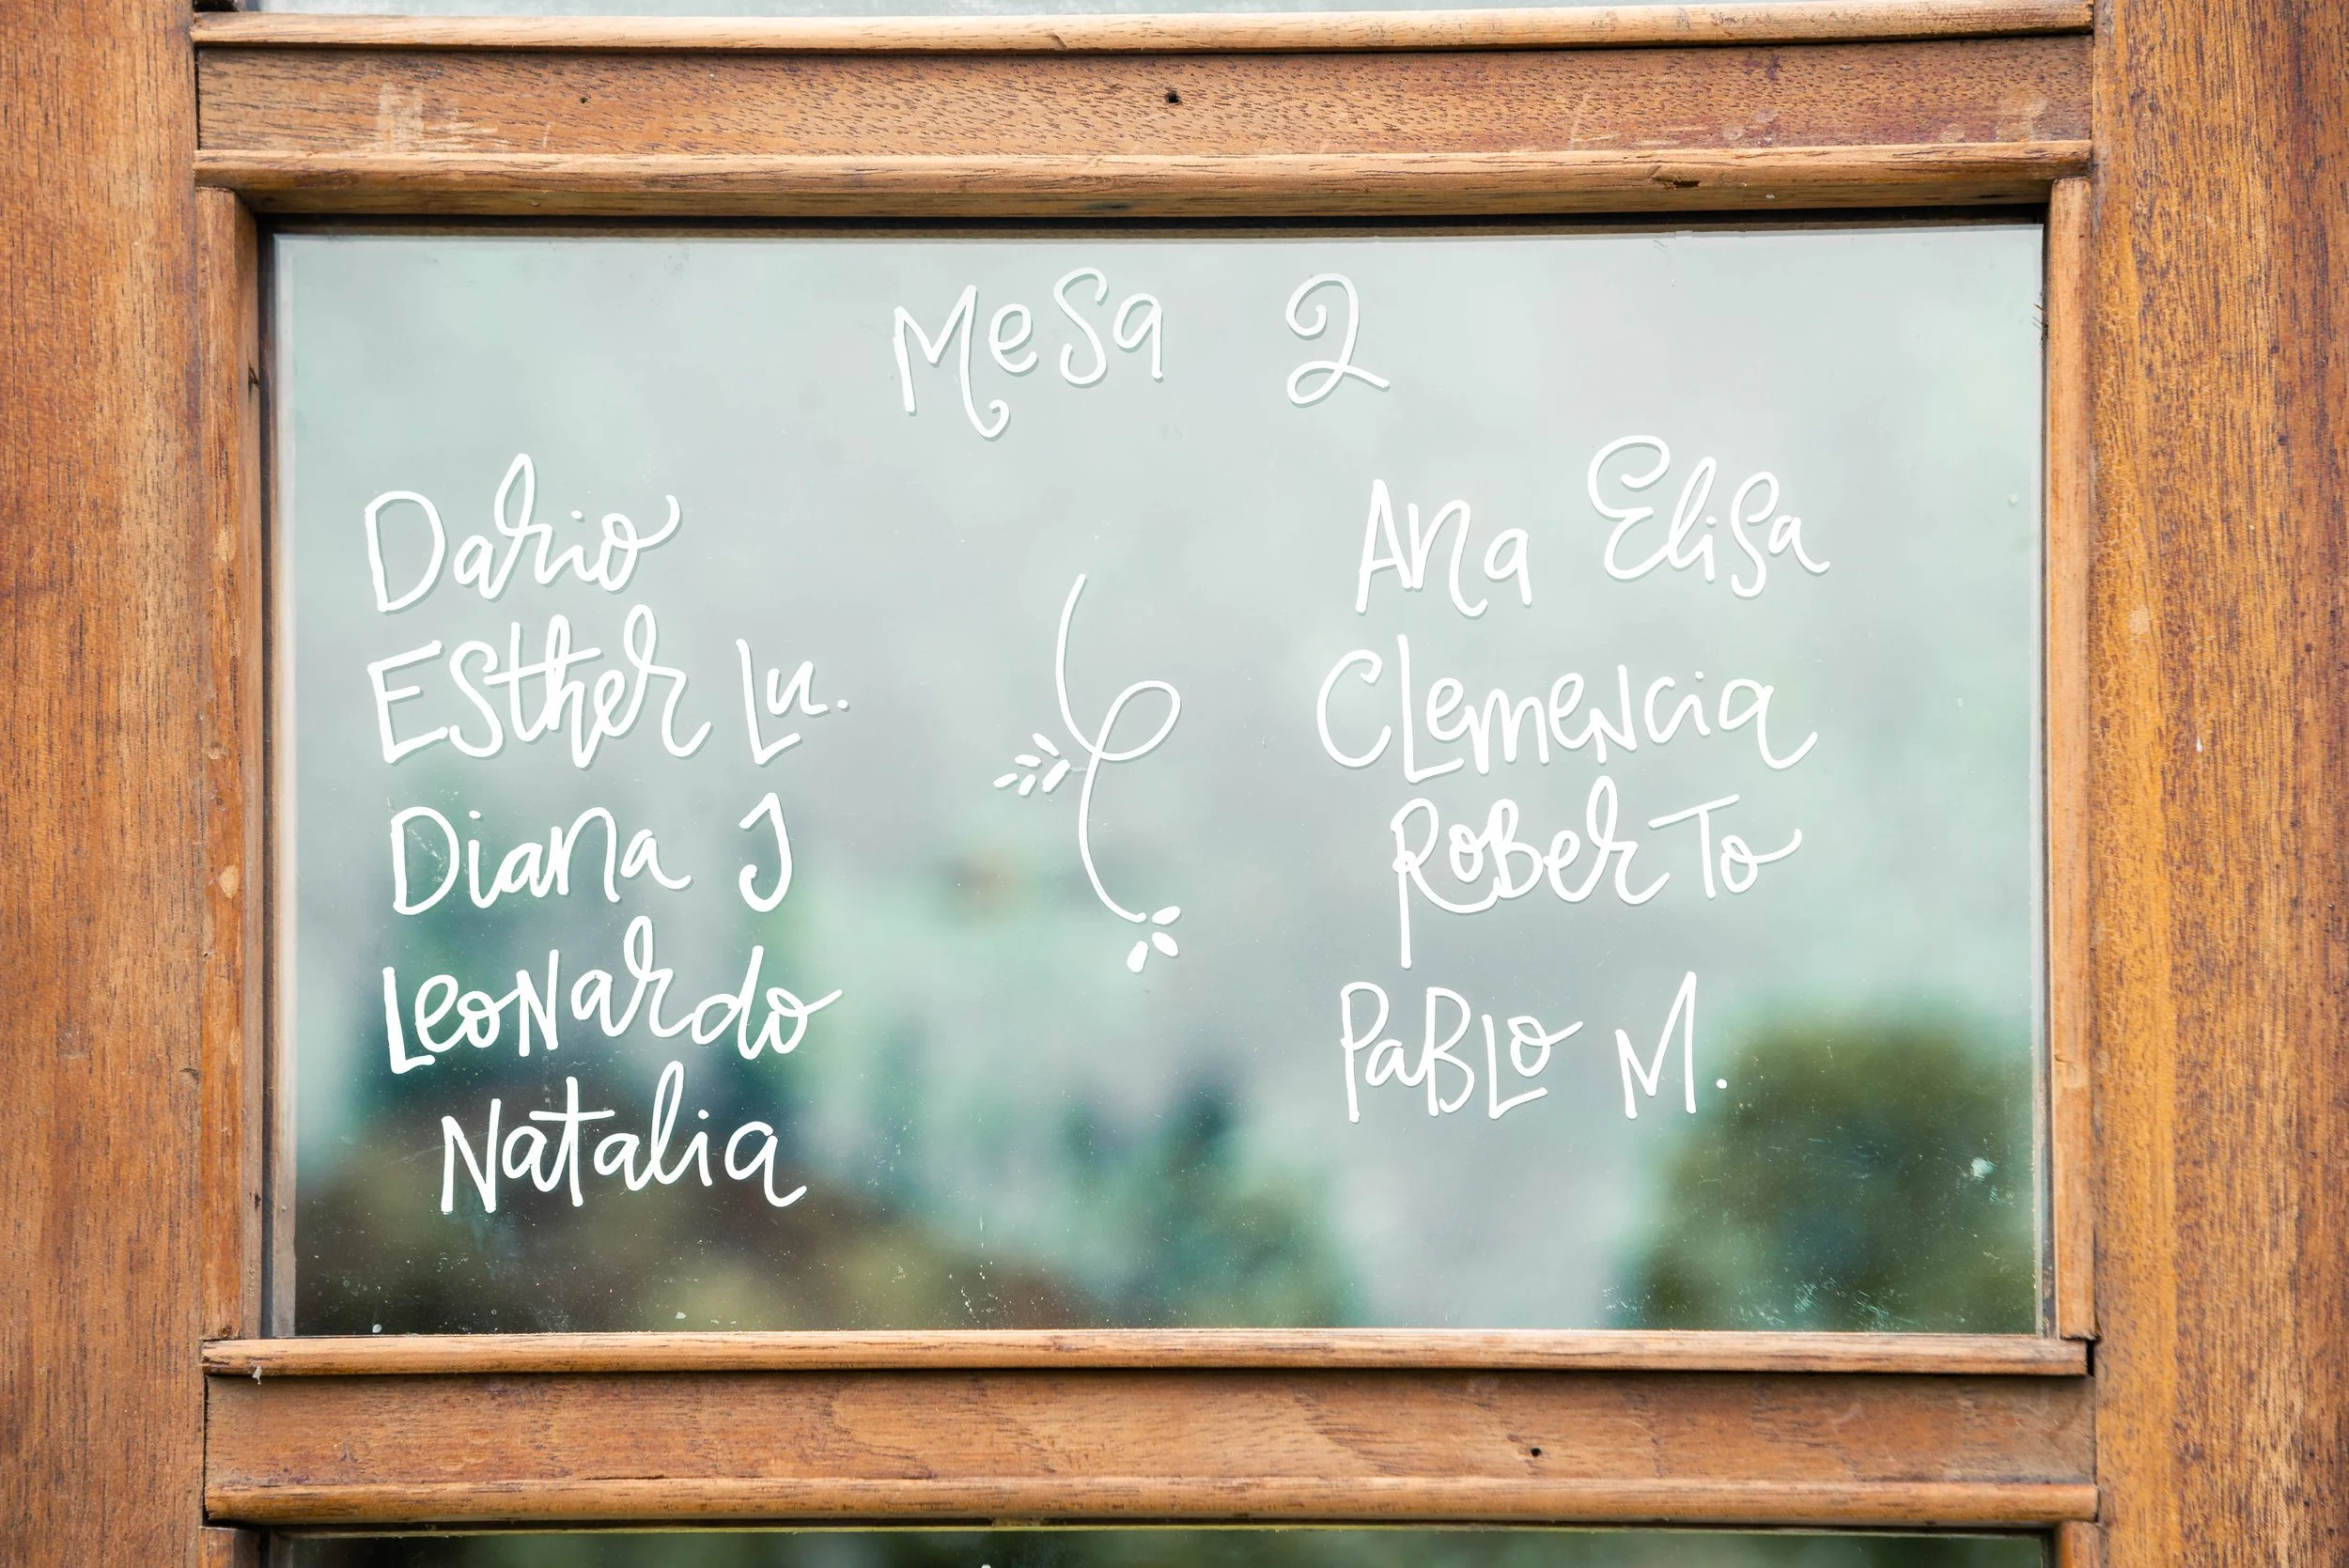 Mesa 2
Dario
Esther Lu.
Diana J
Leonardo
Natalia
Ana Elisa
Clemencia
Roberto
Pablo M.